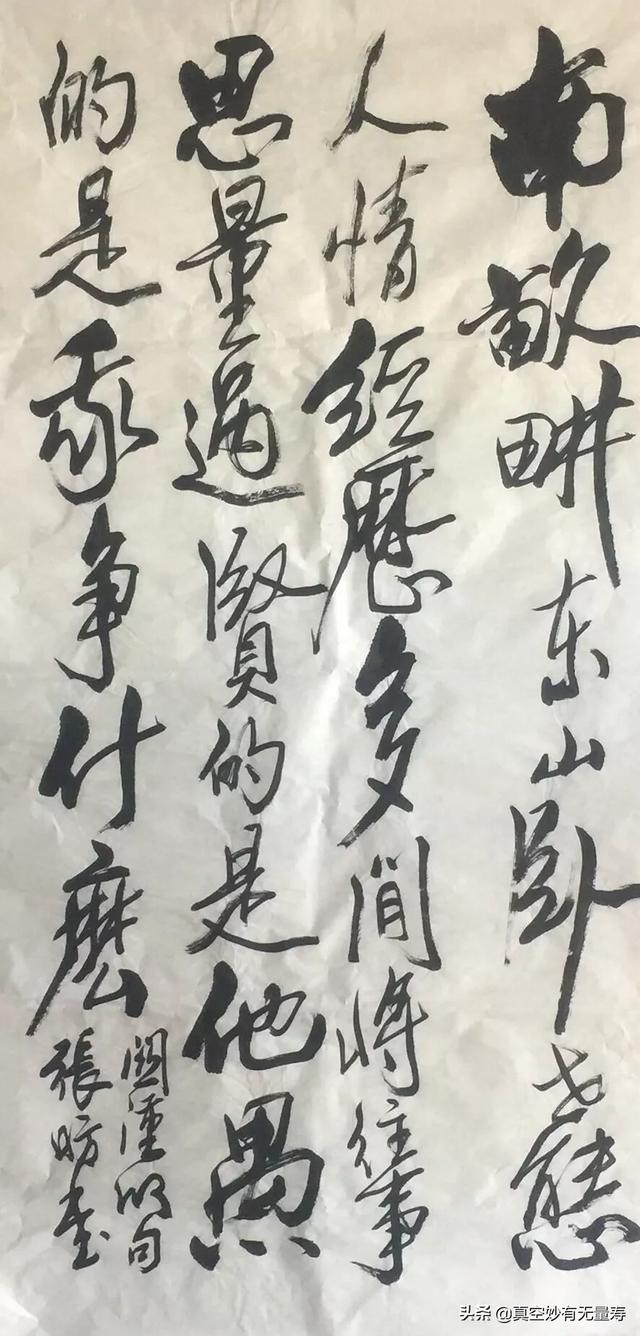 南畝畊东山卧世態
人情經歷多閒將往事
思量過賢的是他愚
的是我争什麼
關漢卿句
張昉書
头条 @真空妙有无量寿